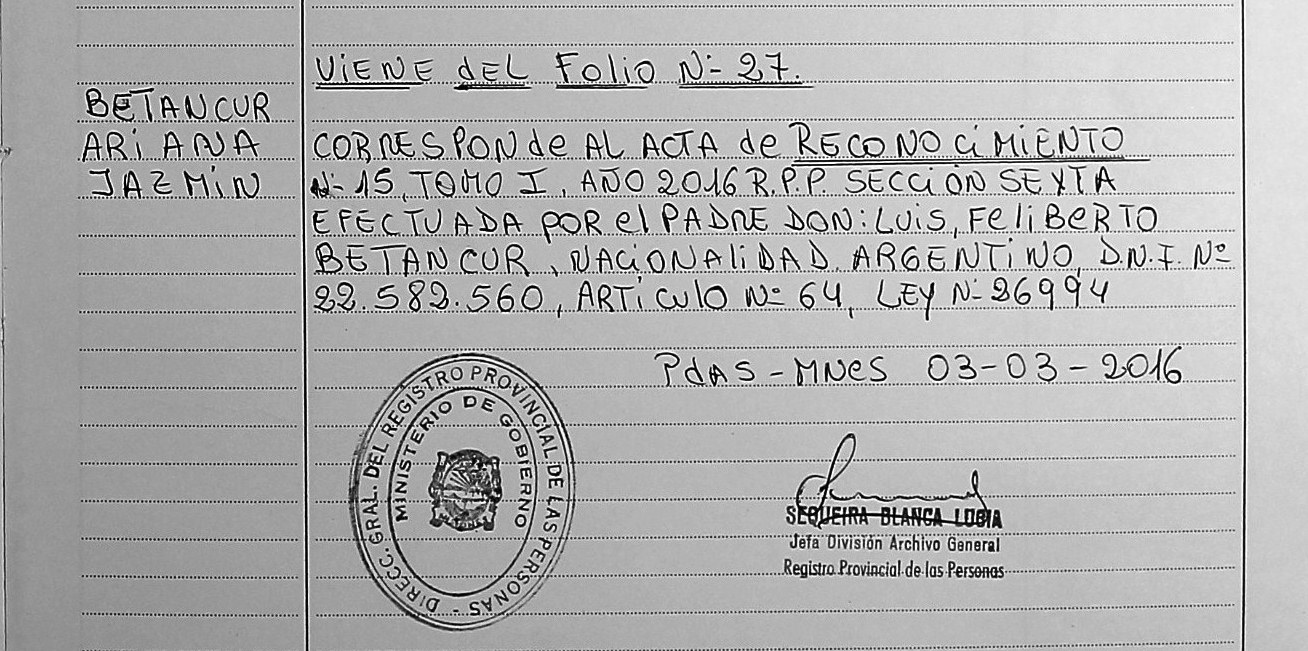 VIENE DEL FOLIO Nº 27.
BETANCUR
ARIANA
JAZMIN
CORRESPONDE AL ACTA DE RECONOCIMIENTO
Nº 15, TOMO I, AÑO 2016 R.P.P. SECCIÓN SEXTA
EFECTUADA POR EL PADRE DON: LUIS, FELIBERTO
BETANCUR, NACIONALIDAD ARGENTINO, D.N.I. Nº
22.582.560, ARTICULO Nº 64, LEY Nº 26994
PDAS - MNES 03-03-2016
DIRECC. GRAL. DEL REGISTRO PROVINCIAL DE LAS PERSONAS -
MINISTERIO DE GOBIERNO
MISIONES
SEQUEIRA BLANCA LUCIA
Jefa División Archivo General
Registro Provincial de las Personas